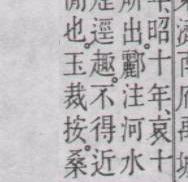 昭十年、哀十
所出。酈注河水
逕趣。不得近
也。玉裁按。桑